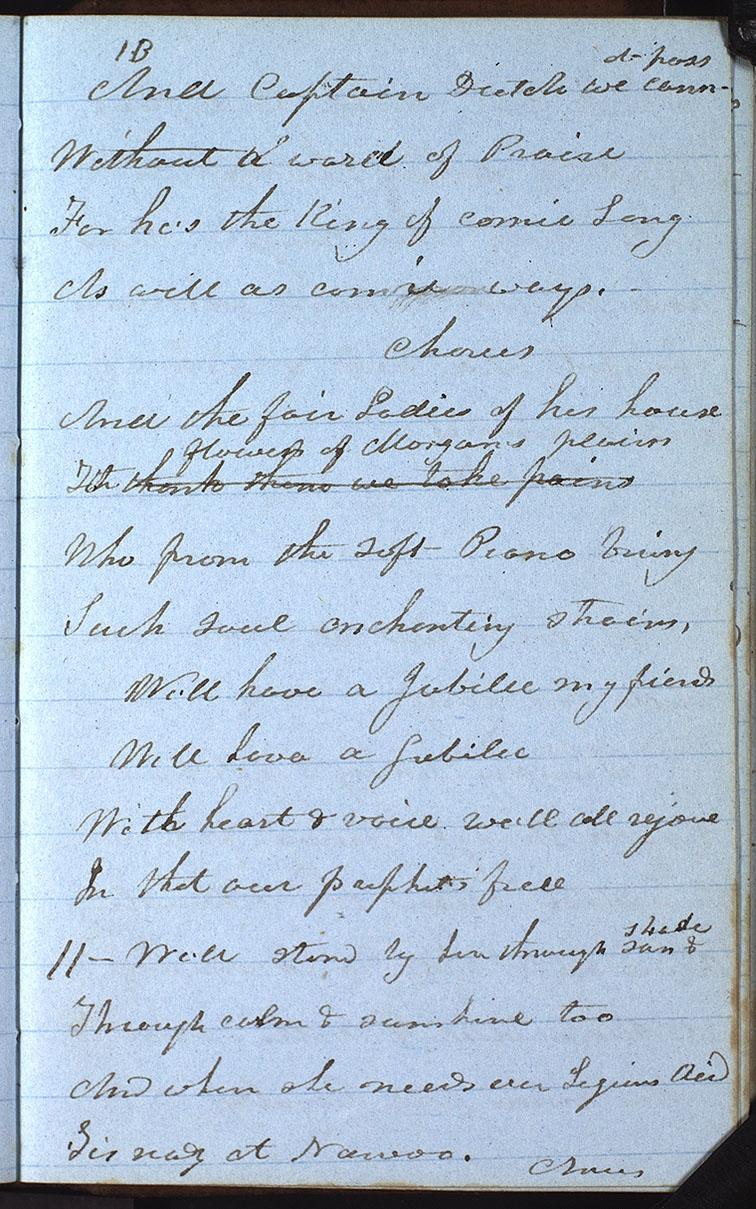 1B
And Captain Dutch we cann-
ot pass
Without a word of Praise
For he's the King of comic Song
As well as comic ways.
Chorus
And the fair Ladies of his house
flowers of Morgans plains
To thank them we take pains
Who from the soft Piano bring
Such soul enchanting strains,
We'll have a Jubilee my friends
We'll have a Jubilee
With heart & voice we'll all rejoice
In that our prophet's free
11- We'll stand by her through sun &
shade
Through calm & sunshine too
And when she needs our Legions Aid
Tis ready at Nauvoo.
Chorus